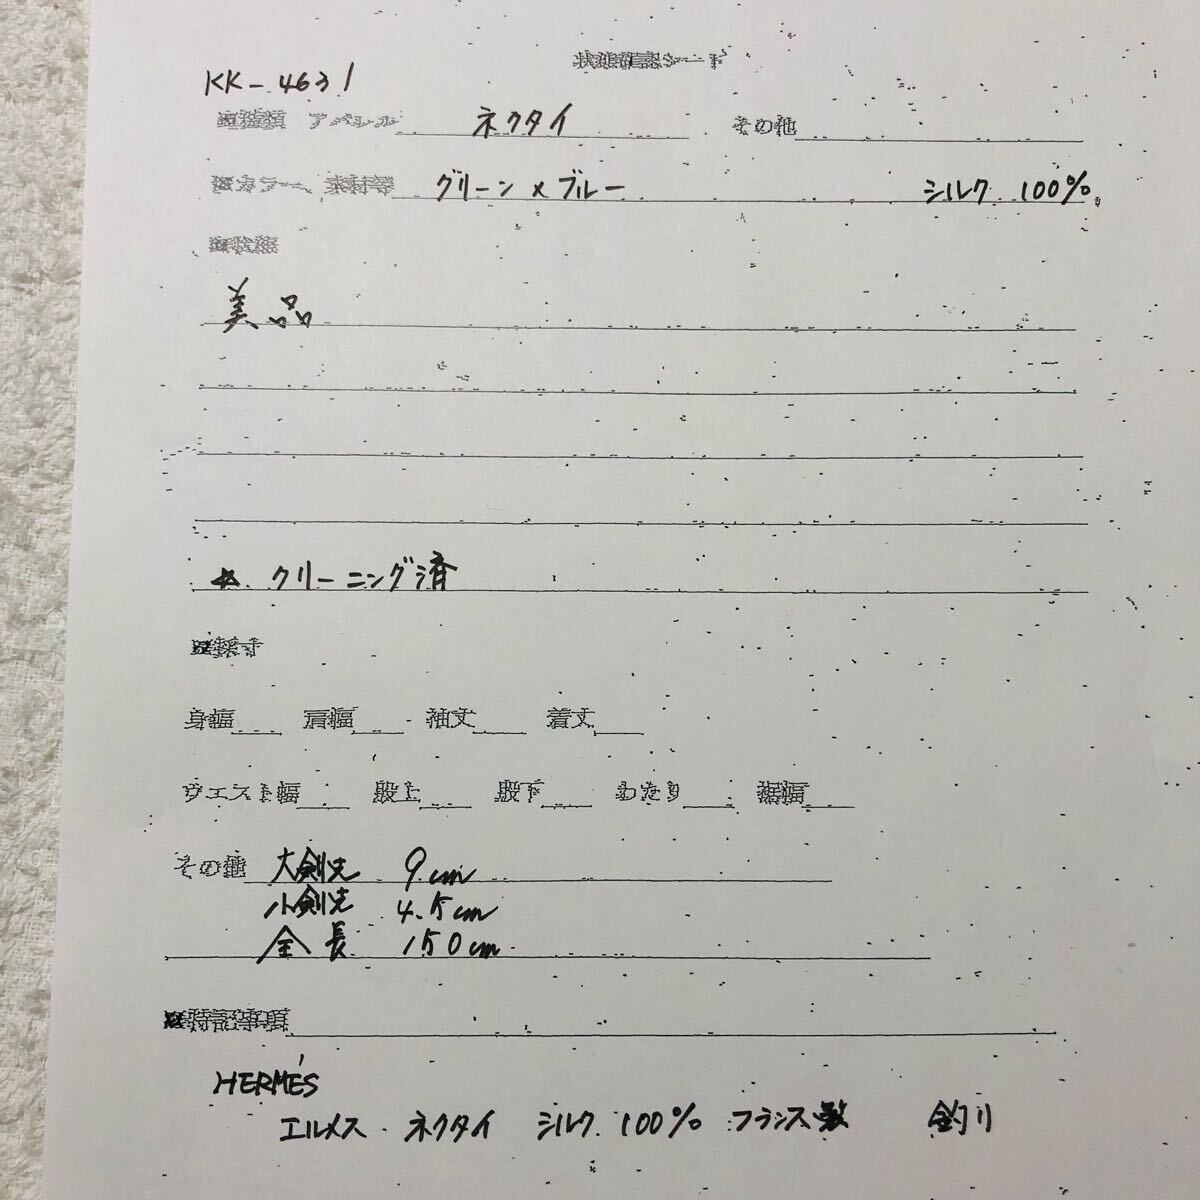 状態確認シート
KK-4631
■種類 アパレル ネクタイ その他
■カラー、素材等 グリーン×ブルー シルク 100%
■状態
美品
☆ クリーニング済
■採寸
身幅 肩幅 袖丈 着丈
ウエスト幅 股上 股下 わたり 裾幅
その他 大剣先 9cm
小剣先 4.5cm
全長 150cm
■特記事項
HERMÉS
エルメス ネクタイ シルク 100% フランス製 釣り